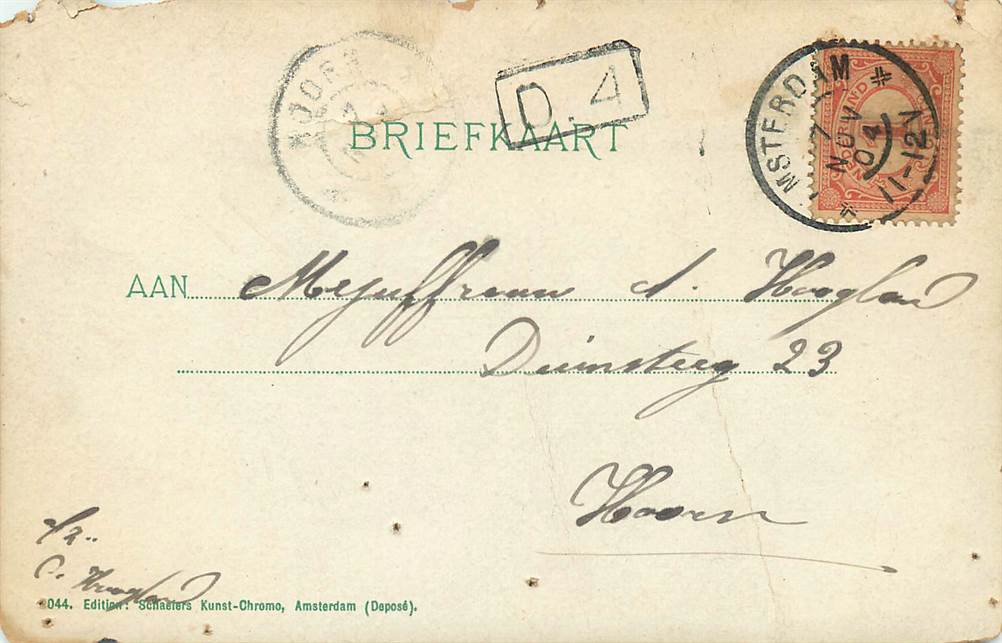 HOORN
D. 4
AMSTERDAM
7 NOV 04
11-12V
BRIEFKAART
AAN Mejuffrouw A. Hoogland
Duinsteeg 23
Hoorn
Afz..
C. Hoogland
044. Edition: Schaefers Kunst-Chromo, Amsterdam (Deposé).